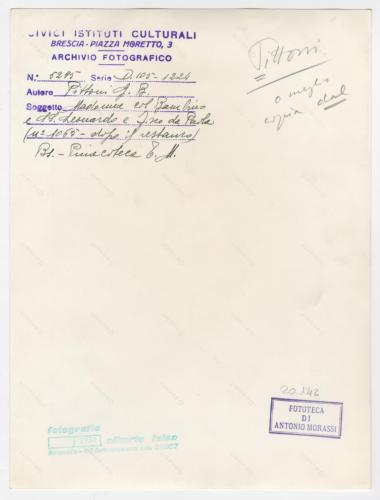 CIVICI ISTITUTI CULTURALI
BRESCIA - PIAZZA MORETTO, 3
ARCHIVIO FOTOGRAFICO
N.° 5275 Serie D.105-1224
Autore Pittoni G. B.
Soggetto Madonna col Bambino
e SS. Leonardo e Fr.co da Paola
(n° 1065 - dopo il restauro)
Bs. - Pinacoteca T. M.
Pittoni
o meglio
copia dal
20.142
FOTOTECA
DI
ANTONIO MORASSI
fotografia